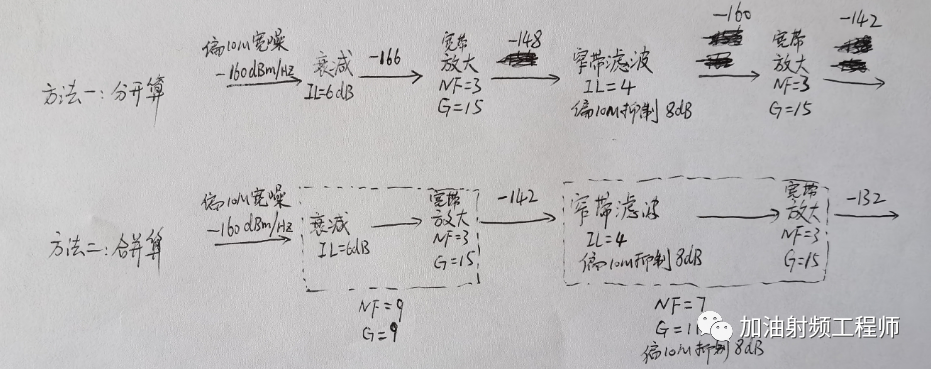 方法一：分开算
偏10M宽噪
-160dBm/Hz
衰减
IL=6dB
-166
宽带
放大
NF=3
G=15
-148
窄带滤波
IL=4
偏10M抑制8dB
-160
宽带
放大
NF=3
G=15
-142
方法二：合并算
偏10M宽噪
-160dBm/Hz
衰减
IL=6dB
宽带
放大
NF=3
G=15
NF=9
G=9
-142
窄带滤波
IL=4
偏10M抑制8dB
宽带
放大
NF=3
G=15
NF=7
G=11
偏10M抑制8dB
-132
加油射频工程师